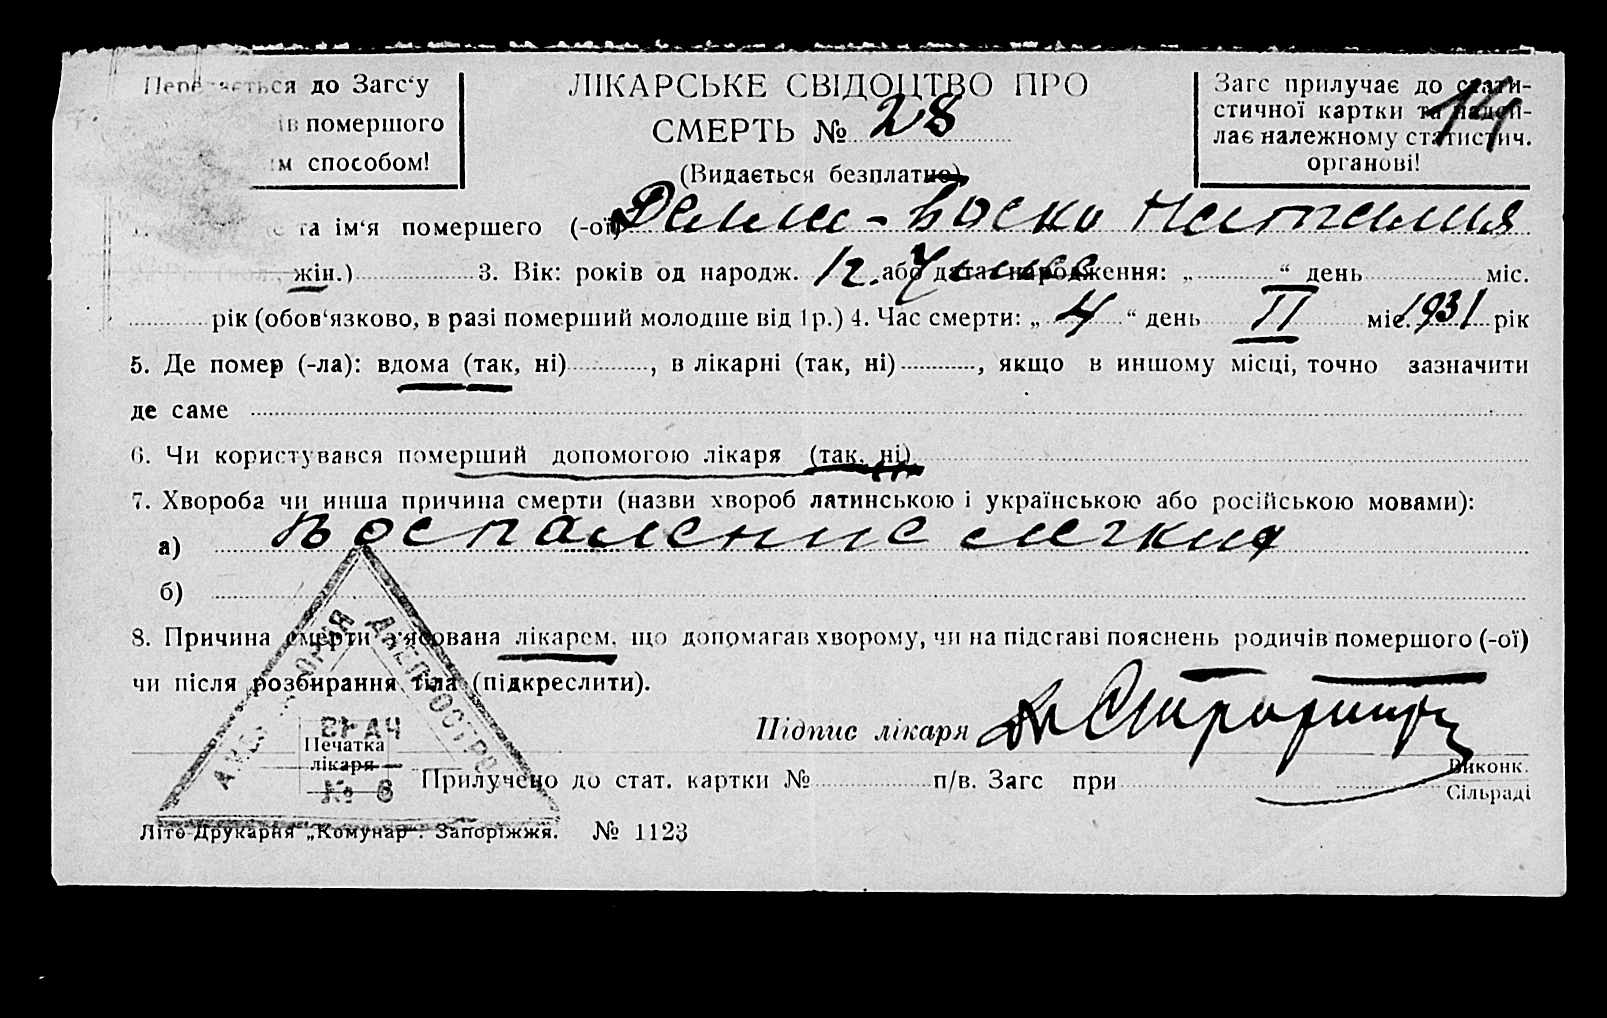 до Загс‘у
помершого
способом!
ЛІКАРСЬКЕ СВІДОЦТВО ПРО
СМЕРТЬ № 28
(Видається безплатно)
Загс прилучає до стати-
стичної картки та надси-
лає належному статистич.
органові!
14
та ім‘я помершего (-ої) Наталия
жін.) 3. Вік: років од народж. 1 г. 7 або дата народження: „ “ день міс.
рік (обов‘язково, в разі померший молодше від 1 р.) 4. Час смерти: „ 4 “ день II міс. 1931 рік
5. Де помер (-ла): вдома (так, ні) , в лікарні (так, ні) , якщо в иншому місці, точно зазначити
де саме
6. Чи користувався померший допомогою лікаря (так, ні)
7. Хвороба чи инша причина смерти (назви хвороб латинською і українською або російською мовами):
а) Воспаление легких
б)
8. Причина смерти з‘ясована лікарем, що допомагав хворому, чи на підставі пояснень родичів помершого (-ої)
чи після розбирання тіла (підкреслити).
ДНЕПРОСТРО
ВРАЧ
№ 6
Печатка
лікаря
Підпис лікаря
Прилучено до стат. картки № п/в. Загс при
Виконк.
Сільраді
Літо-Друкарня „Комунар“. Запоріжжя. № 1123